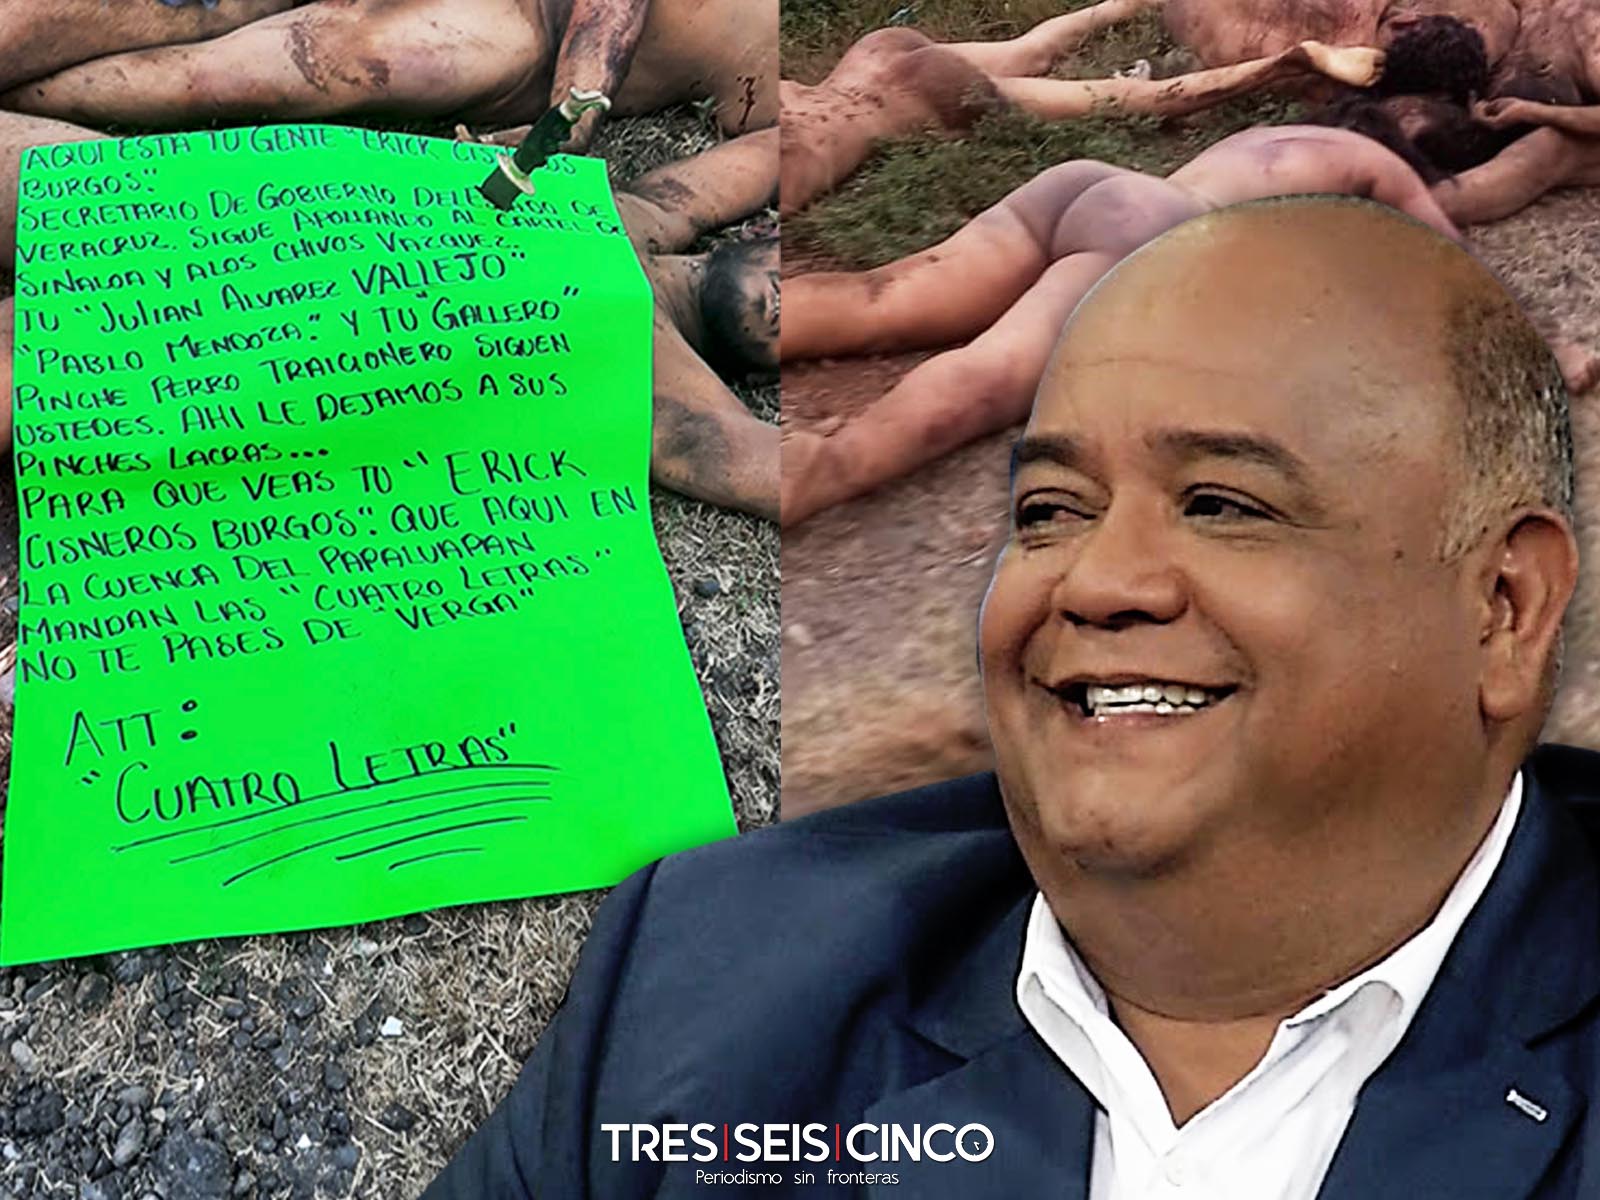 AQUI ESTA TU GENTE "ERICK
BURGOS".
SECRETARIO DE GOBIERNO DE
VERACRUZ. SIGUE APOLLANDO AL CARTEL DE
SINALOA Y ALOS CHIVOS VAZQUEZ.
TU "JULIAN ALVAREZ VALLEJO"
"PABLO MENDOZA." Y TU "GALLERO"
PINCHE PERRO TRAICIONERO SIGUEN
USTEDES. AHI LE DEJAMOS A SUS
PINCHES LACRAS...
PARA QUE VEAS TU "ERICK
CISNEROS BURGOS". QUE AQUI EN
LA CUENCA DEL PAPALUAPAN
MANDAN LAS "CUATRO LETRAS"
NO TE PASES DE "VERGA"
ATT:
"CUATRO LETRAS"
TRES|SEIS|CINCO
Periodismo sin fronteras